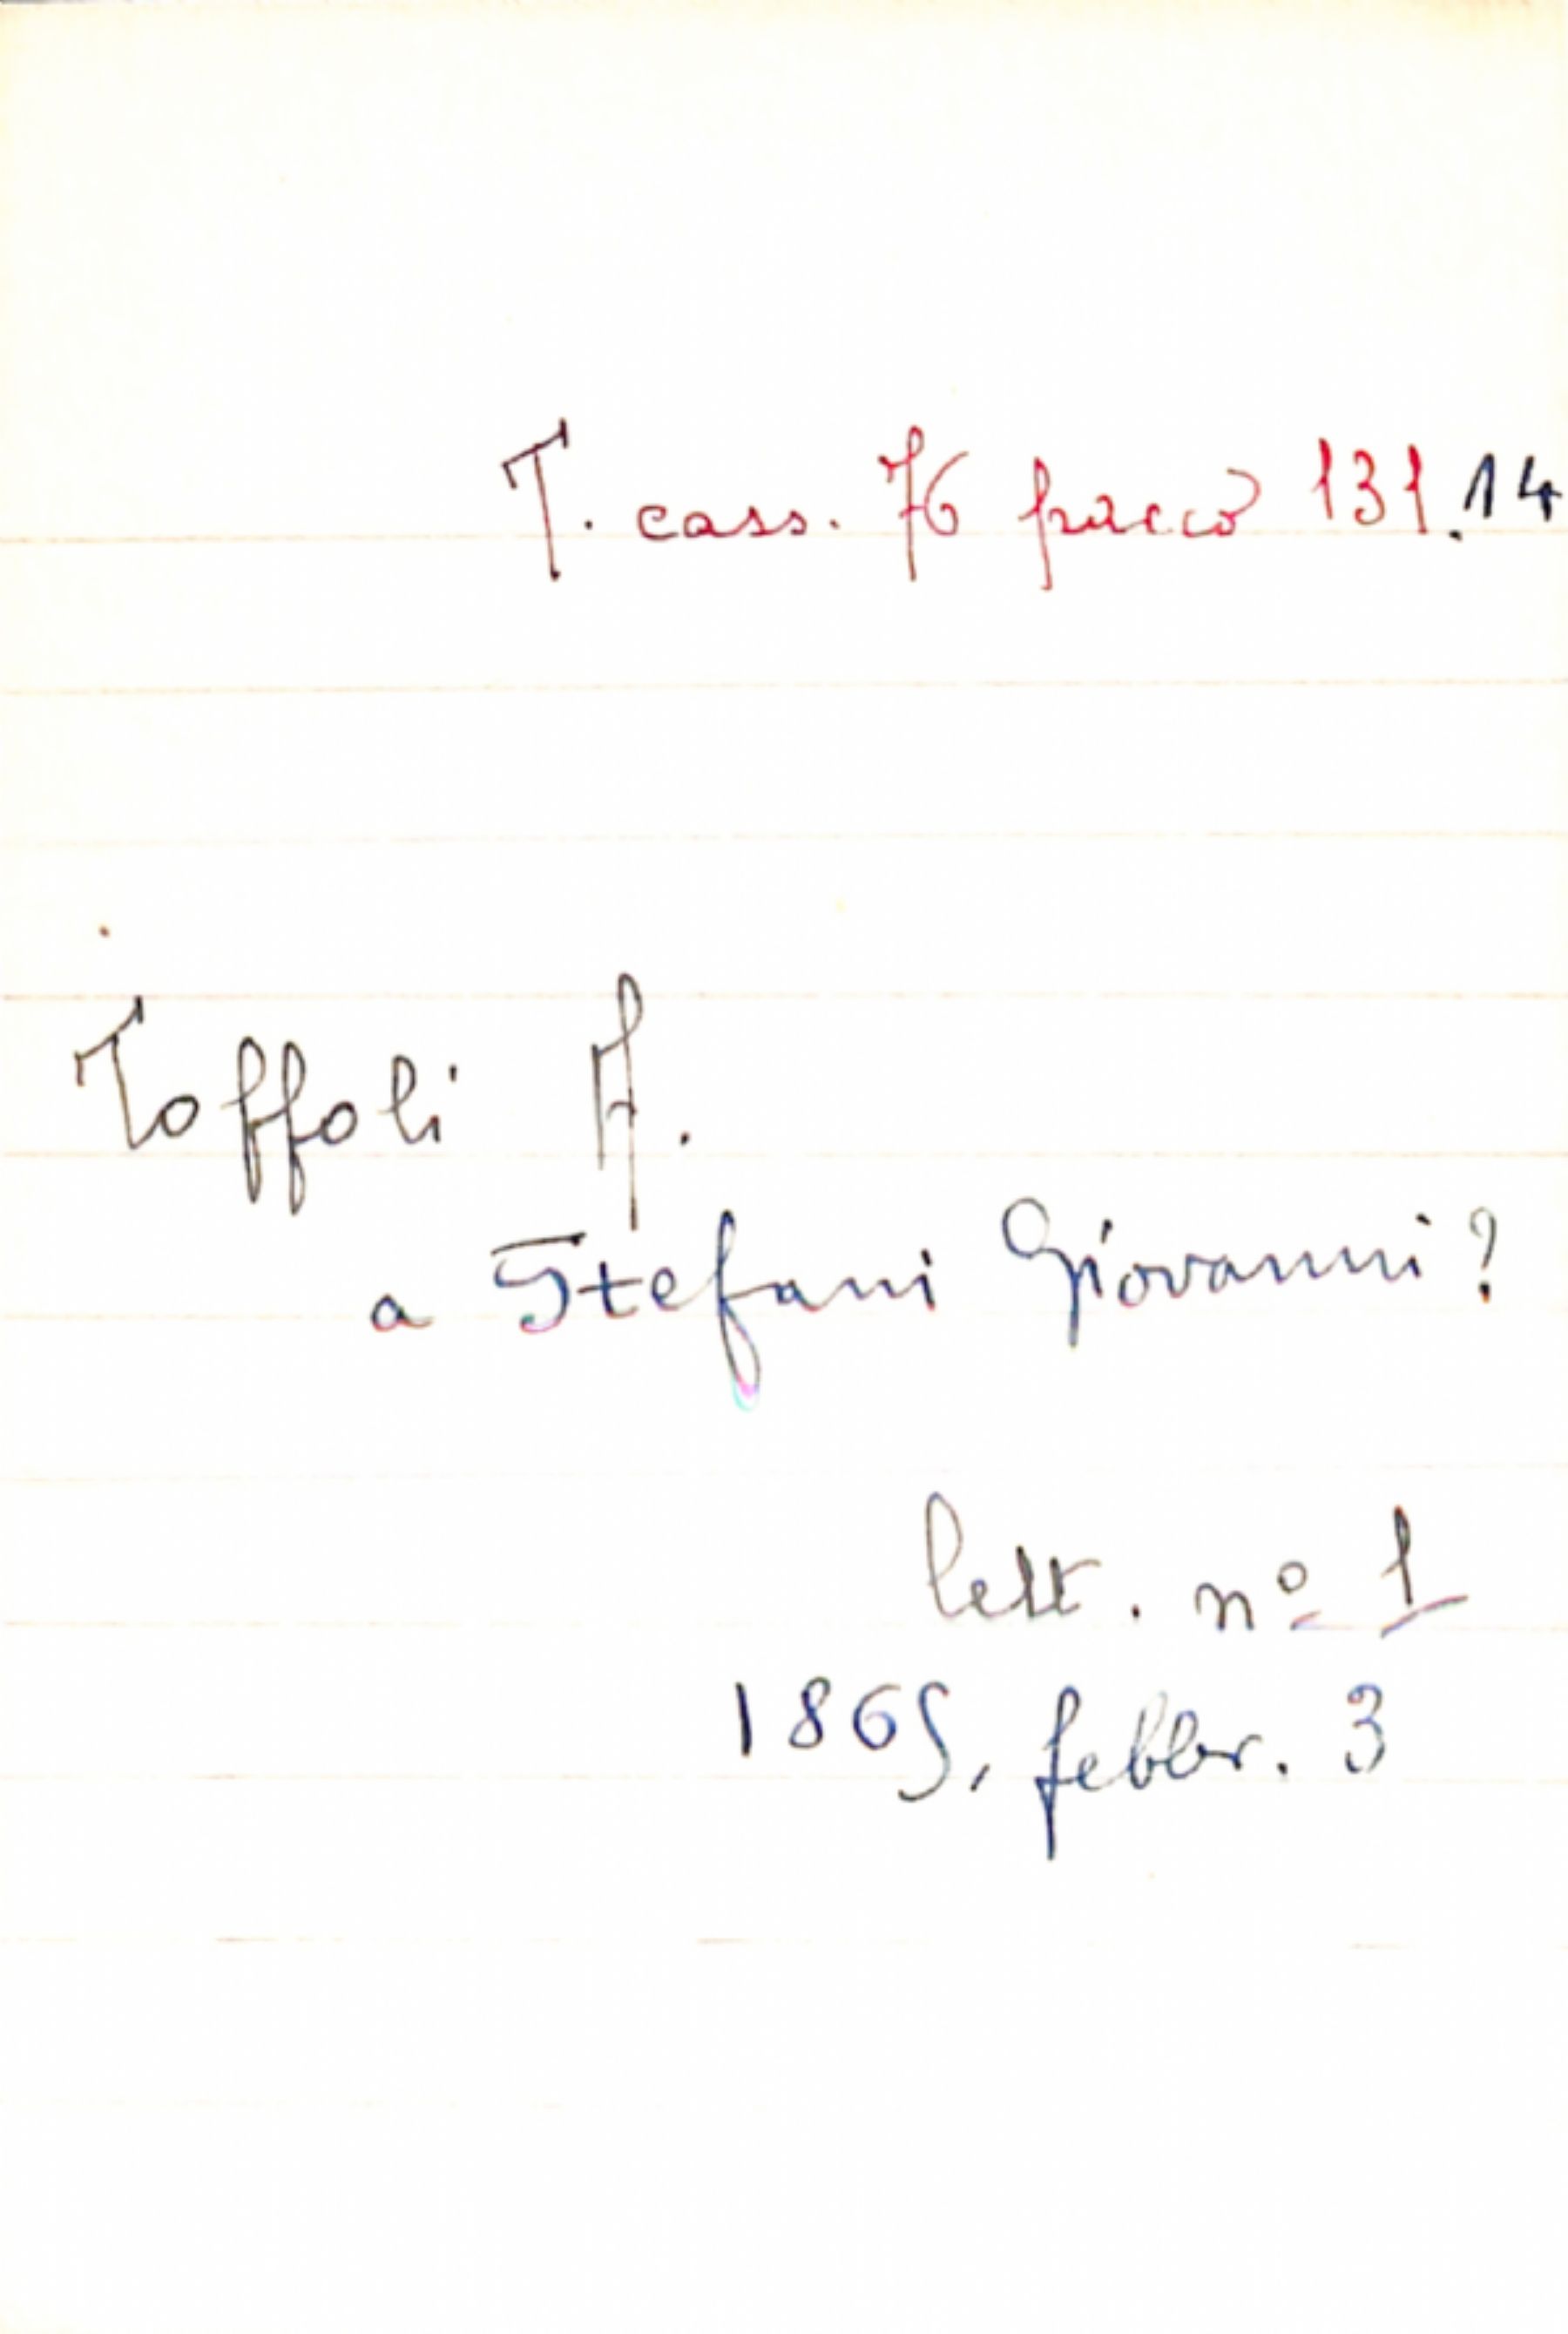 T. cass. 76 pacco 131.14
Toffoli A.
a Stefani Giovanni?
lett. nº 1
1865, febbr. 3